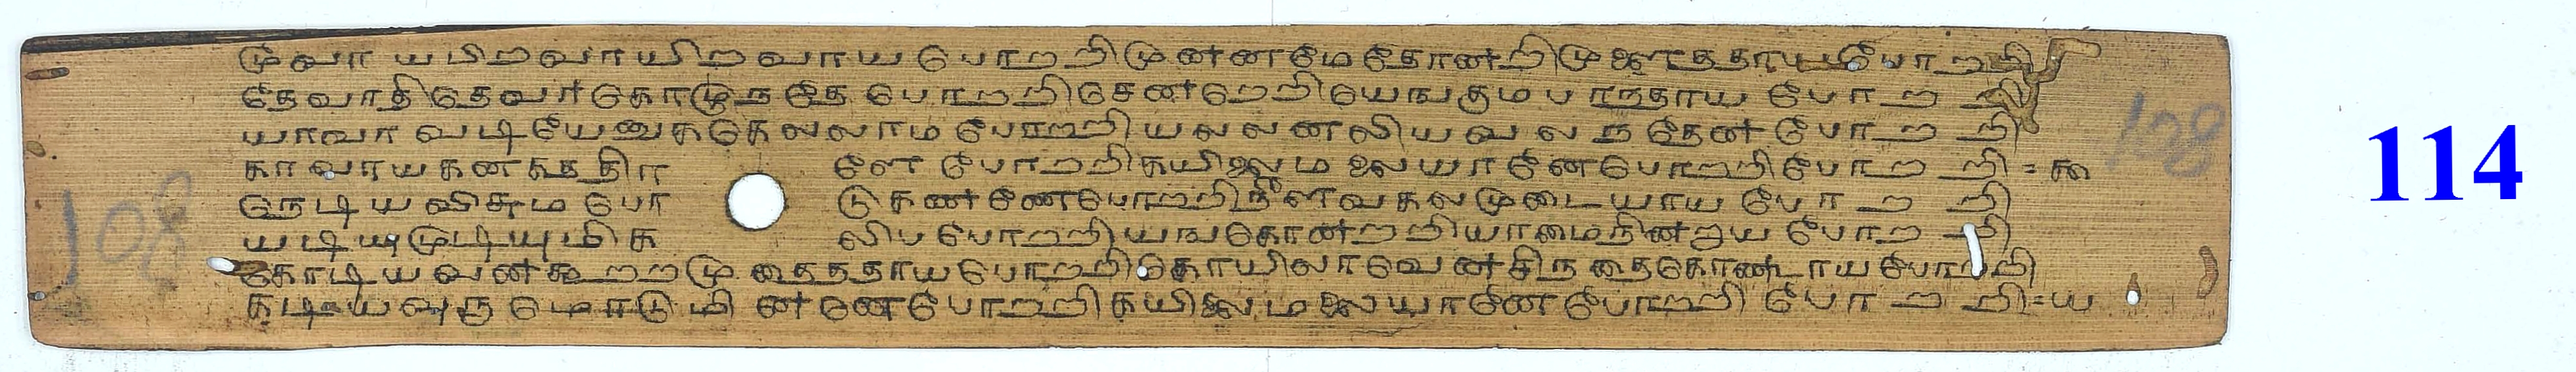 மூவாயபிறவாயிறவாயபொறறிமுன்னமேதோன்றிமுளைத்தாயபோறறி
தேவாதிதேவர்தொழுநதே பொறறிசென்றெறியெஙகுமபரநதாய போறறி
யாவாவடியேனுககெலலாம பொறறியலலனலியவலநதேன் போறறி
காவாயகனகததிர ளே பொறறிகயிலைமலையானேபொறறிபோறறி=௯
நெடியவிசுமபொ டுகண்ணேபொறறிநீளவகலமுடையாய போறறி
யடியுமுடியுமிக லிபபொறறியஙகொன்றறியாமைநின்றாய போறறி
கொடியவன்கூறறமுதைததாயபொறறிகொயிலாவென்சிநதைகொண்டாயபோறறி
கடியவுருமொடு மின்னேபொறறிகயிலைமலையானேபோறறி போறறி=ய
114
108
108